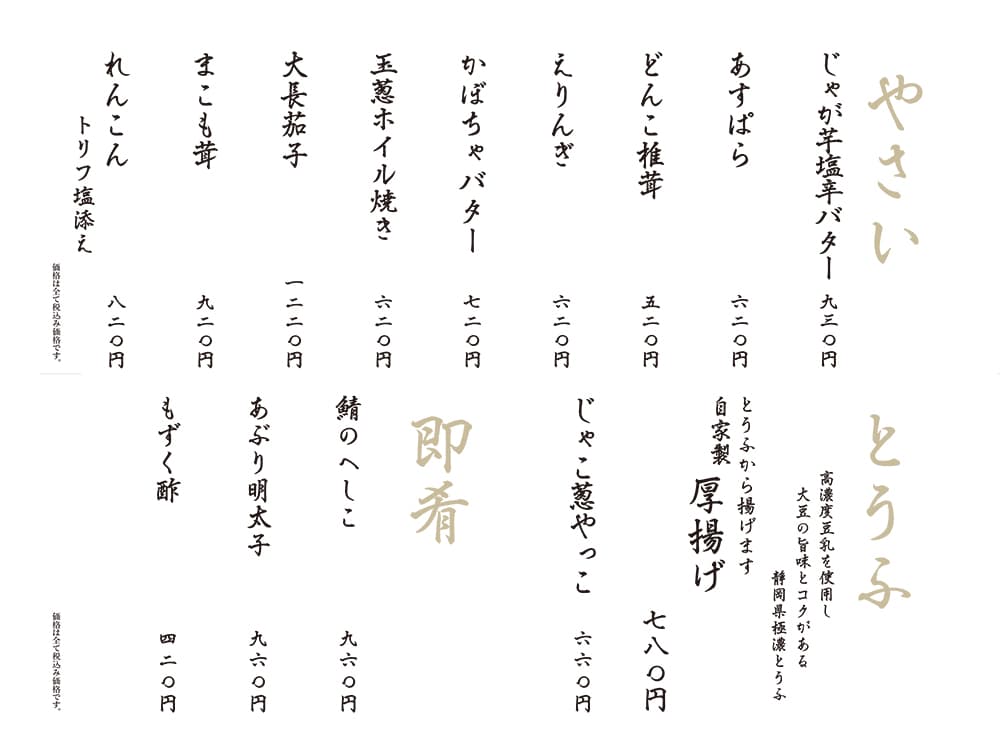 やさい
じゃが芋塩辛バター 九三〇円
あすぱら 六二〇円
どんこ椎茸 五二〇円
えりんぎ 六二〇円
かぼちゃバター 七二〇円
玉葱ホイル焼き 六二〇円
大長茄子 一二二〇円
まこも茸 九二〇円
れんこん 八二〇円
トリフ塩添え
価格は全て税込み価格です。
とうふ
高濃度豆乳を使用し
大豆の旨味とコクがある
静岡県極濃とうふ
とうふから揚げます
自家製 厚揚げ
七八〇円
じゃこ葱やっこ 六六〇円
即肴
鯖のへしこ 九六〇円
あぶり明太子 九六〇円
もずく酢 四二〇円
価格は全て税込み価格です。